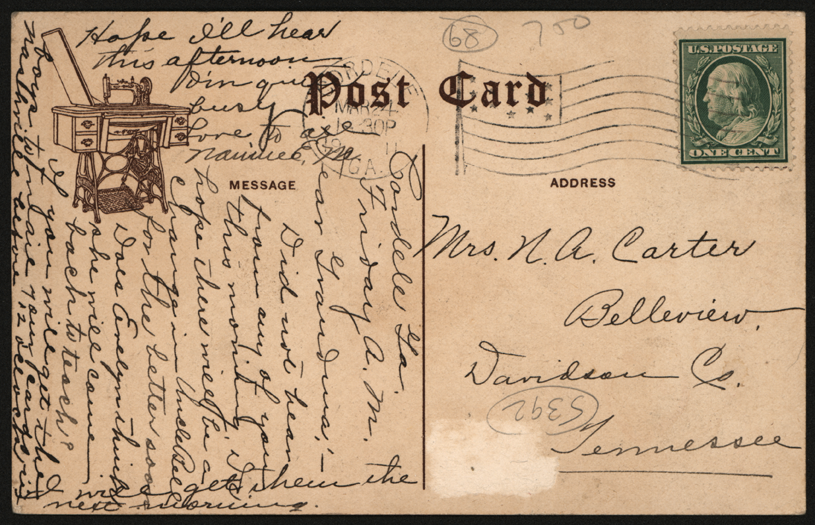 68
750
U.S. POSTAGE
ONE CENT
Post Card
CORDELE
MAR 24
30P
11
GA.
MESSAGE
ADDRESS
Mrs. N. A. Carter
Belleview.
Davidson Co.
Tennessee
5392
Cordele Ga.
Friday A. M.
Dear Grandma:—
Did not hear
from any of you
this morning. I
hope there will be a
change in Uncle Bel
for the better soon
Does Evelyn think
she will come
back to teach?
If you will get the
boys to
Nashville before 12 o'clock
I will get them the
next morning.
Hope I'll hear
this afternoon
busy
Love to all